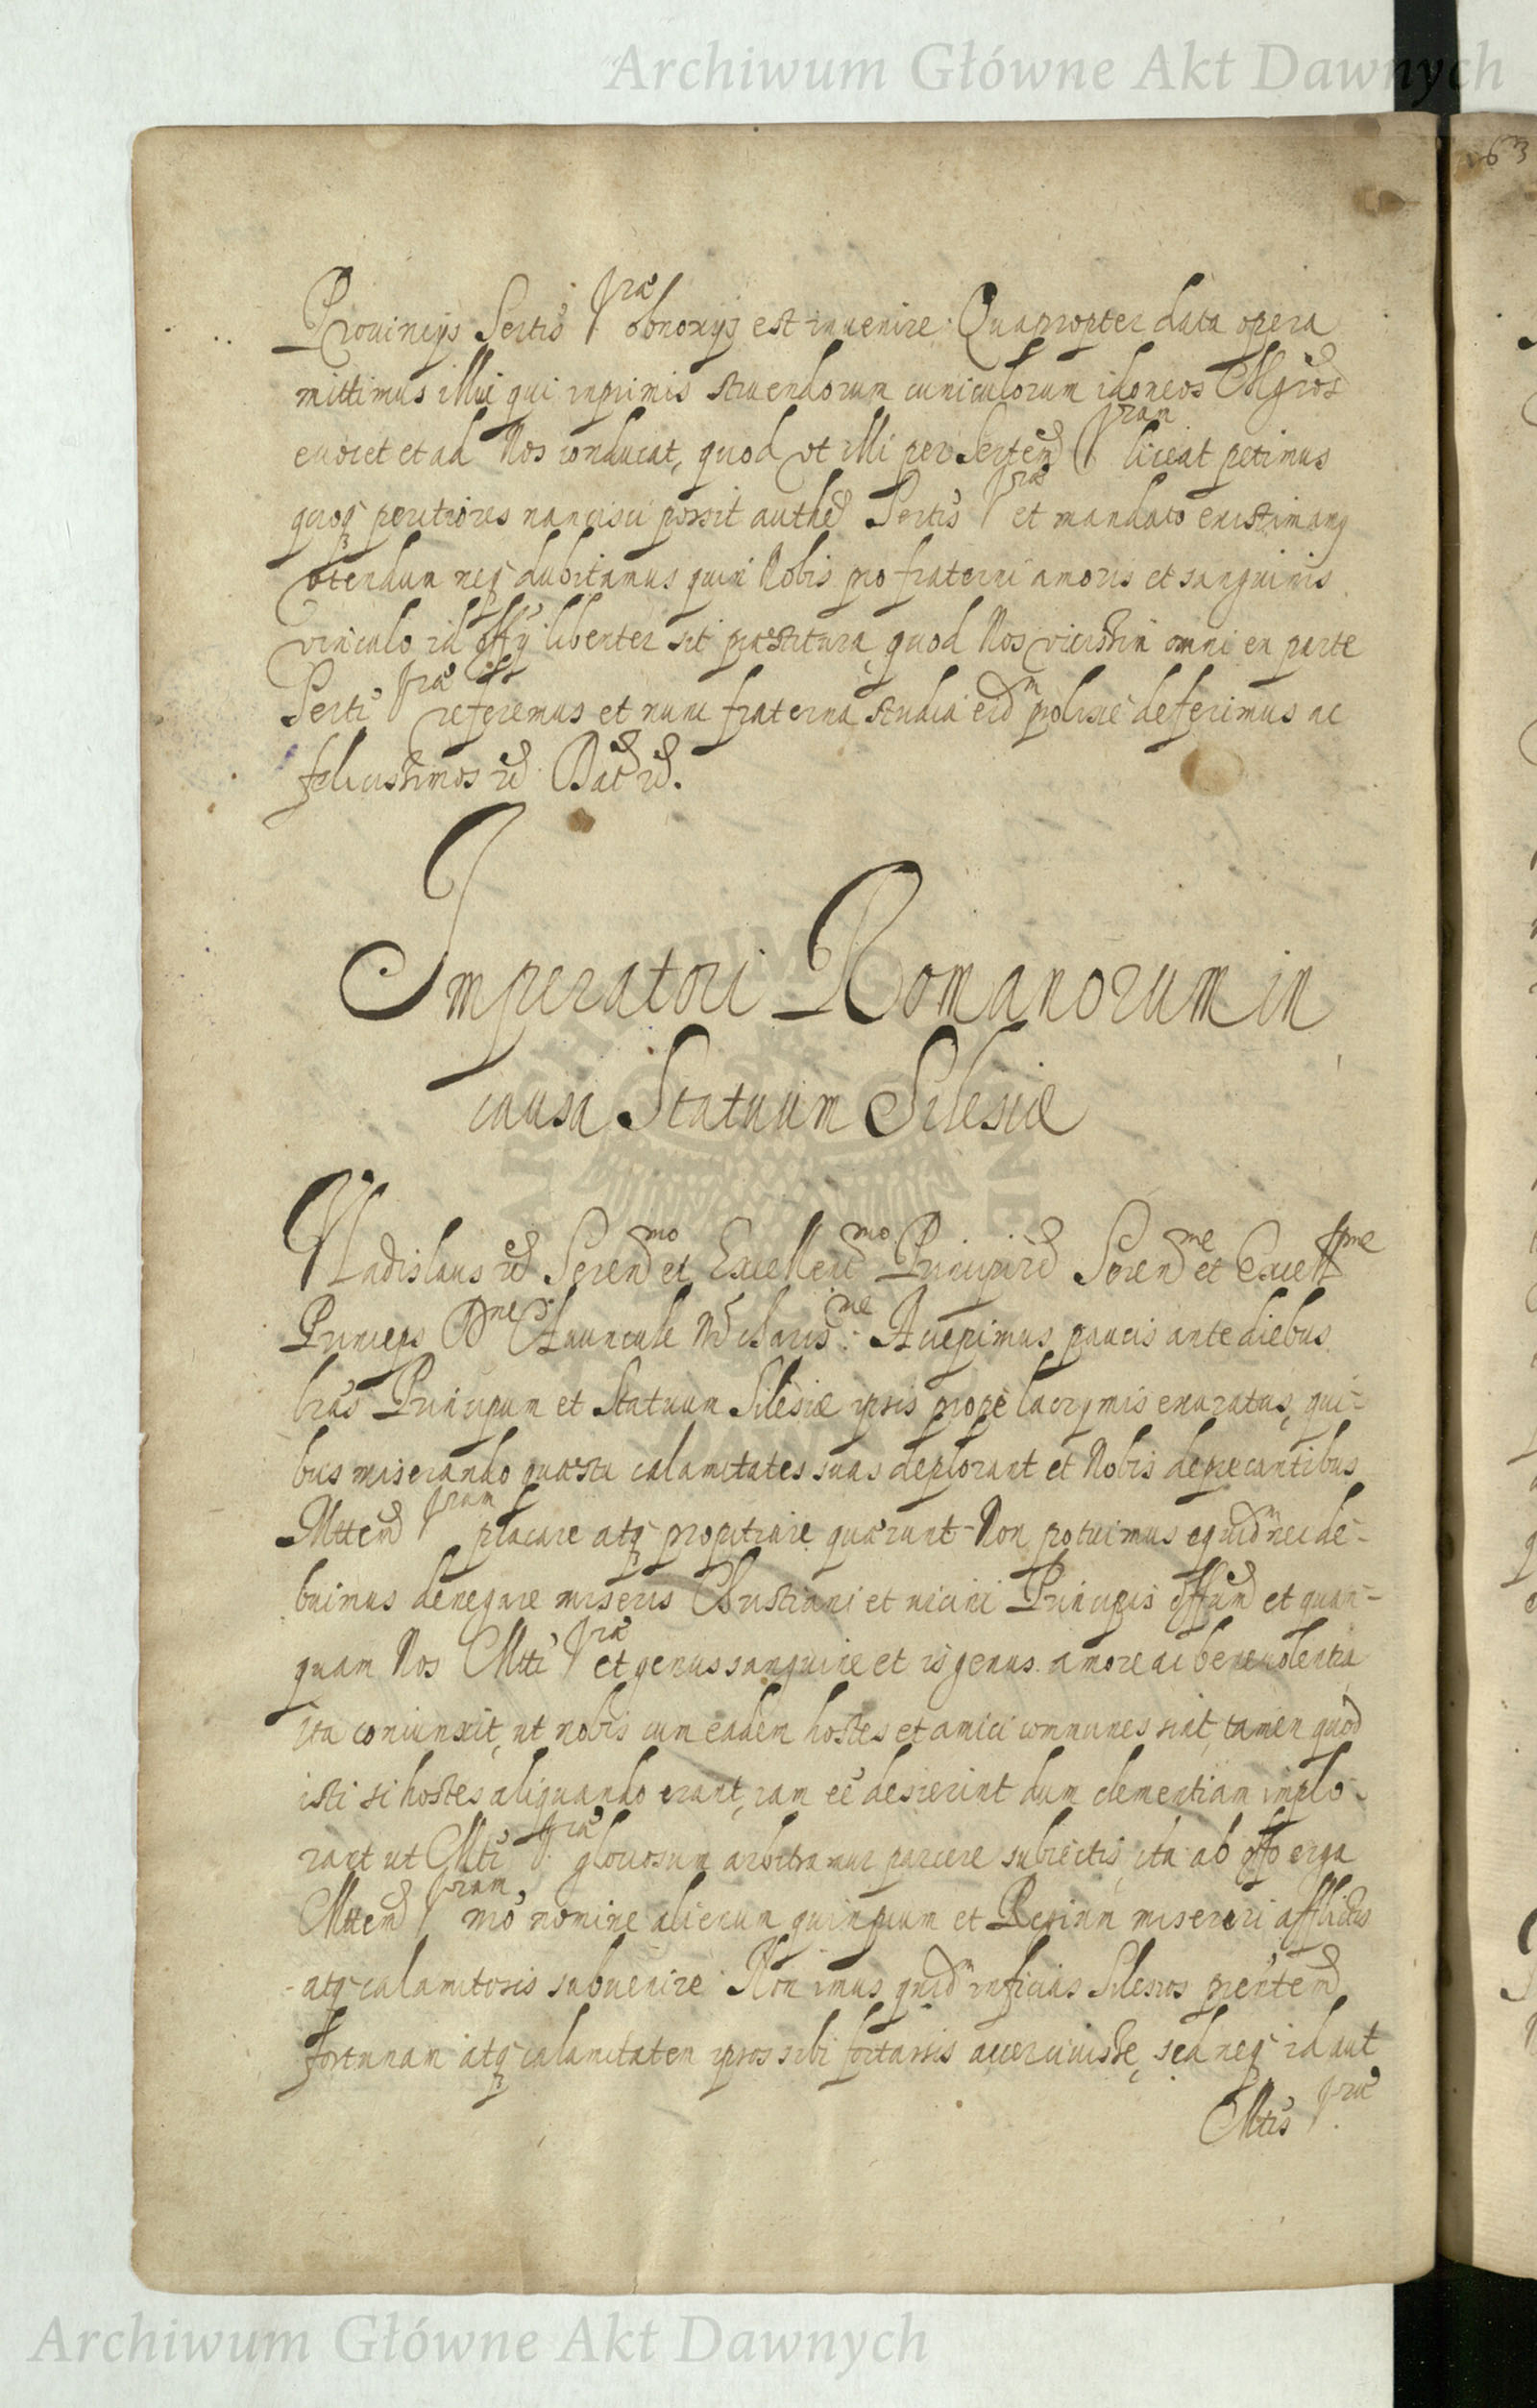 Archiwum Główne Akt Dawnych
63
Prouincijs Sertis Vrae obnoxijs est inuenire. Quapropter data opera
mittimus illuc qui inprimis struendorum cuniculorum idoneos Mgros
euocet et ad Nos conducat, quod ut illi per Sertem Vram liceat petimus
quoq peritiores nancisci possit authe Sertis Vrae et mandato existimamus
utendum neq dubitamus quin Nobis pro fraterni amoris et sanguinis
vinculo id offij libenter sit praestitura, quod Nos vicissim omni ex parte
Serti Vrae referemus et nunc fraterna studia eid prolixe deferimus ac
felicissimos ec Dat ec.
Imperatori Romanorum in
causa Statuum Silesiae
Vladislaus ec Seren mo et Excellen mo Principi ec Seren me et Excell me
Princeps Dne Auuncule Nr charis me. Accepimus paucis ante diebus
lras Principum et Statuum Silesiae ipsis prope lacrymis exaratas, qui-
bus miserando quaestu calamitates suas deplorant et Nobis deprecantibus
Mttem Vram placare atq propitiare quaerunt. Non potuimus equid nec de-
buimus denegare miseris Christiani et vicini Principis offium et quan-
quam Nos Mtti Vrae et genus sanguine et is genus amore ac beneuolentia
ita coniunxit, ut nobis cum eadem hostes et amici communes sint, tamen quod
isti si hostes aliquando erant, iam eè desierint dum clementiam implo-
rant ut Mtti Vrae gloriosum arbitramur parcere subiectis, ita ab offo erga
Mttem Vram, nro nomine alienum quin pium et Regium misereri afflictis
atq calamitosis subuenire. Non imus quid inficias Silesios prentem
fortunam atq calamitatem ipsos sibi fortassis acciuisse, sed neq id aut
Mtis Vrae
Archiwum Główne Akt Dawnych